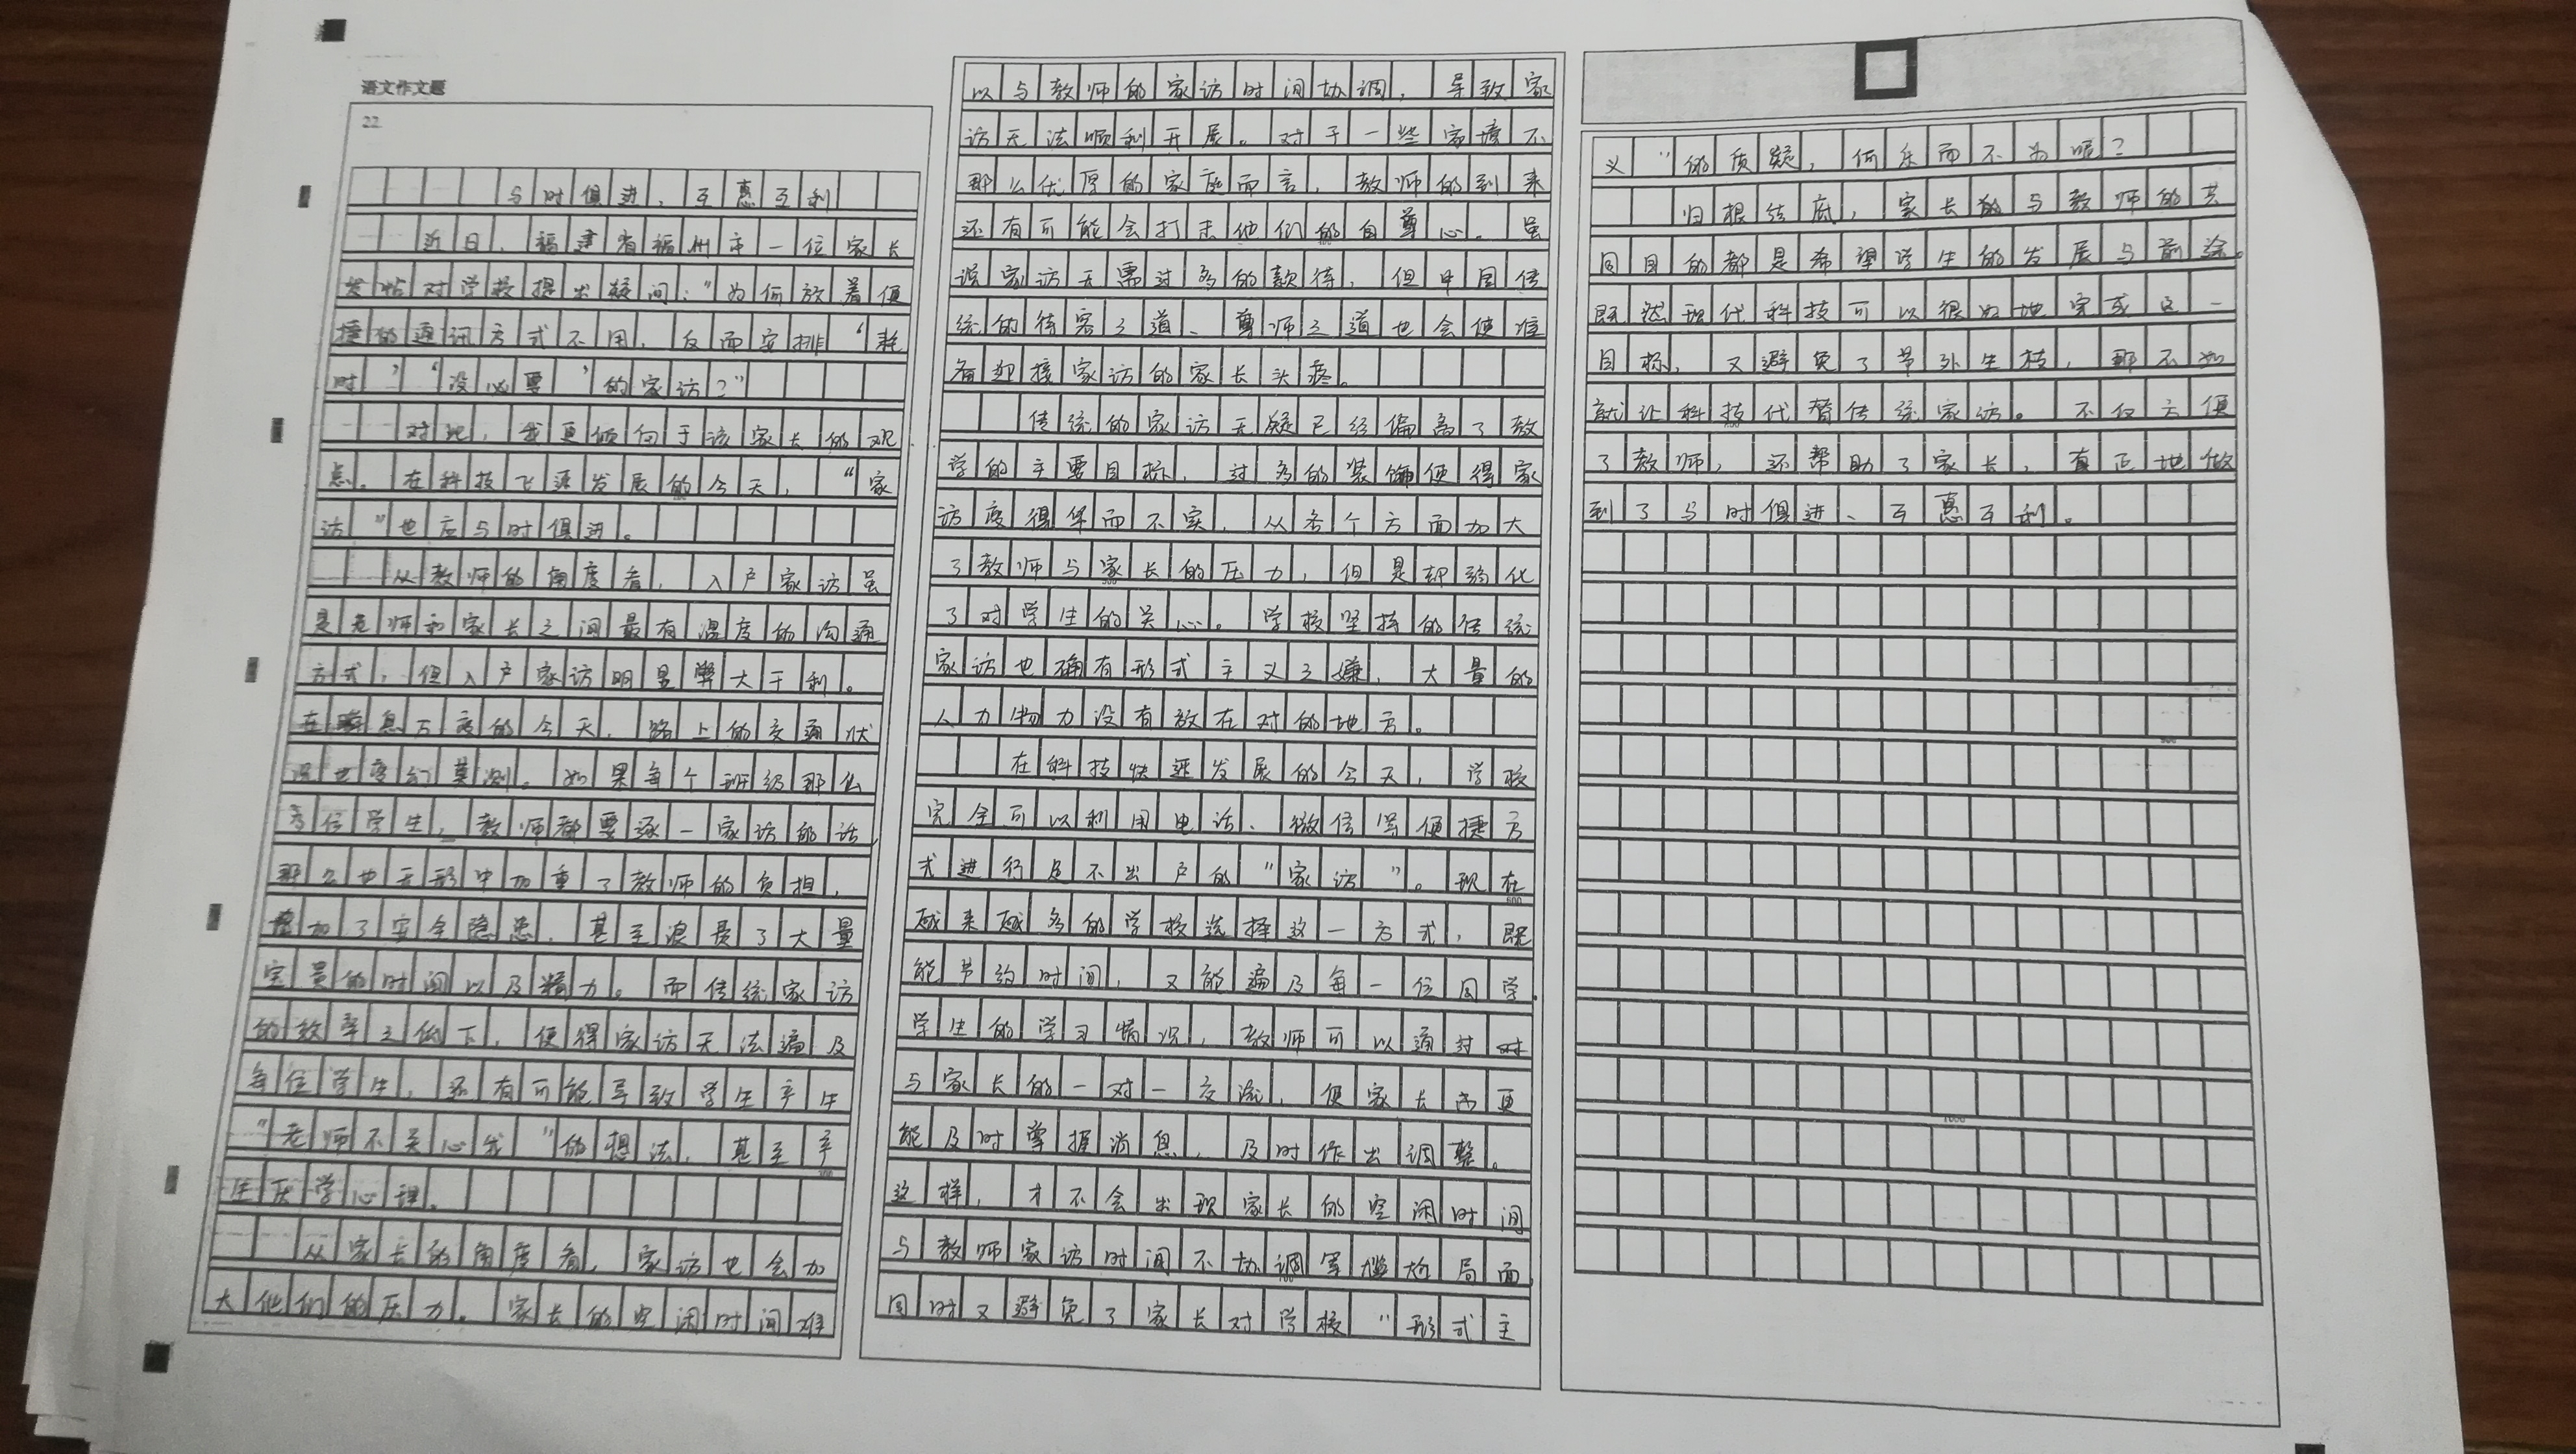 语文作文题
22
与时俱进，互惠互利
近日，福建省福州市一位家长
发帖对学校提出疑问：“为何放着便
捷的通讯方式不用，反而安排‘耗
时’‘没必要’的家访？”
对此，我更倾向于该家长的观
点。在科技飞速发展的今天，“家
访”也应与时俱进。
从教师的角度看，入户家访虽
是老师和家长之间最有温度的沟通
方式，但入户家访明显弊大于利。
在瞬息万变的今天，路上的交通状
况也变幻莫测。如果每个班级那么
多位学生，教师都要逐一家访的话，
那么也无形中加重了教师的负担，
增加了安全隐患，甚至浪费了大量
宝贵的时间以及精力。而传统家访
的效率之低下，使得家访无法遍及
每位学生，还有可能导致学生产生
“老师不关心我”的想法，甚至产
生厌学心理。
从家长的角度看，家访也会加
大他们的压力。家长的空闲时间难
以与教师的家访时间协调，导致家
访无法顺利开展。对于一些家境不
那么优厚的家庭而言，教师的到来
还有可能会打击他们的自尊心。虽
说家访无需过多的款待，但中国传
统的待客之道、尊师之道也会使准
备迎接家访的家长头疼。
传统的家访无疑已经偏离了教
学的主要目标，过多的装饰使得家
访变得华而不实，从各个方面加大
了教师与家长的压力，但是却弱化
了对学生的关心。学校坚持的传统
家访也确有形式主义之嫌，大量的
人力物力没有放在对的地方。
在科技快速发展的今天，学校
完全可以利用电话、微信等便捷方
式进行足不出户的“家访”。现在
越来越多的学校选择这一方式，既
能节约时间，又能遍及每一位同学。
学生的学习情况，教师可以通过
与家长的一对一交流，使家长更
能及时掌握消息，及时作出调整。
这样，才不会出现家长的空闲时间
与教师家访时间不协调等尴尬局面，
同时又避免了家长对学校“形式主
义”的质疑，何乐而不为呢？
归根结底，家长与教师的共
同目的都是希望学生的发展与前途。
既然现代科技可以很好地完成这一
目标，又避免了节外生枝，那不如
就让科技代替传统家访。不仅方便
了教师，还帮助了家长，真正地做
到了与时俱进、互惠互利。